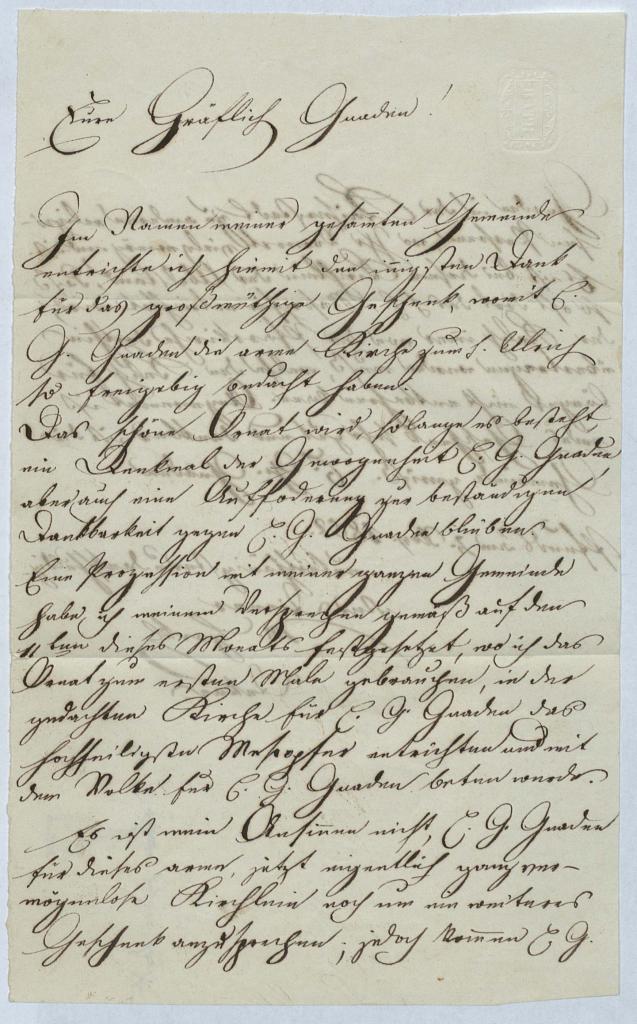 Eure Gräflich Gnaden!
Im Namen meiner gesam̅ten Gemeinde
entrichte ich hiemit den in̅igsten Dank
für das großmüthige Geschenk, womit E.
G. Gnaden die arme Kirche zum h. Ulrich
so freigebig bedacht haben.
Das schöne Ornat wird, so lange es besteht,
ein Denkmal der Gewogenheit E. G. Gnaden,
aber auch eine Auffoderung zur beständigen
Dankbarkeit gegen E. G. Gnaden bleiben.
Eine Prozession mit meiner ganzen Gemeinde
habe ich meinem Versprechen gemäß auf den
11ten dieses Monats festgesetzt, wo ich das
Ornat zum ersten Male gebrauchen, in der
gedachten Kirche für E. G. Gnaden das
hochheiligste Meßopfer entrichten und mit
dem Volke für E. G. Gnaden beten werde.
Es ist mein Ansinnen nicht, E. G. Gnaden
für dieses arme, jetzt eigentlich ganz ver-
mögenlose Kirchlein noch um ein weiteres
Geschenk anzusprechen; jedoch können E. G.